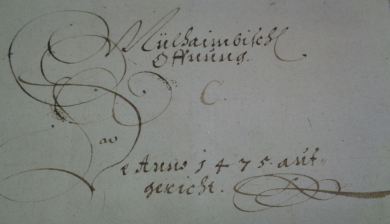 Mülhaimbisch
Offnung.
C.
De Anno 1475 auf-
gericht.